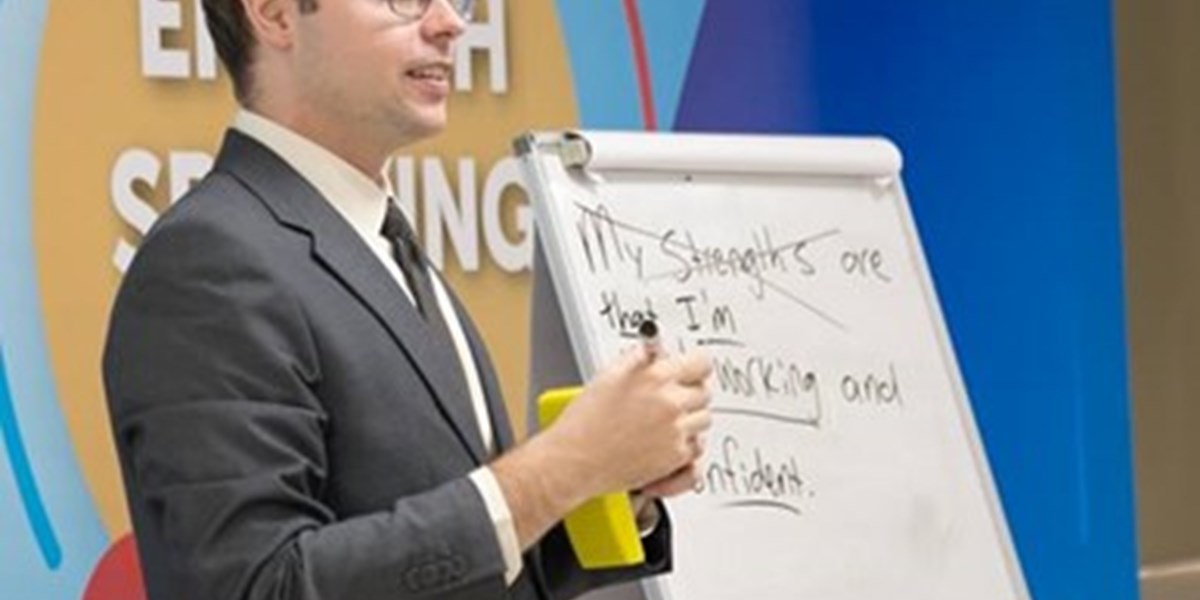 My Strengths are
that I'm
working and
confident.